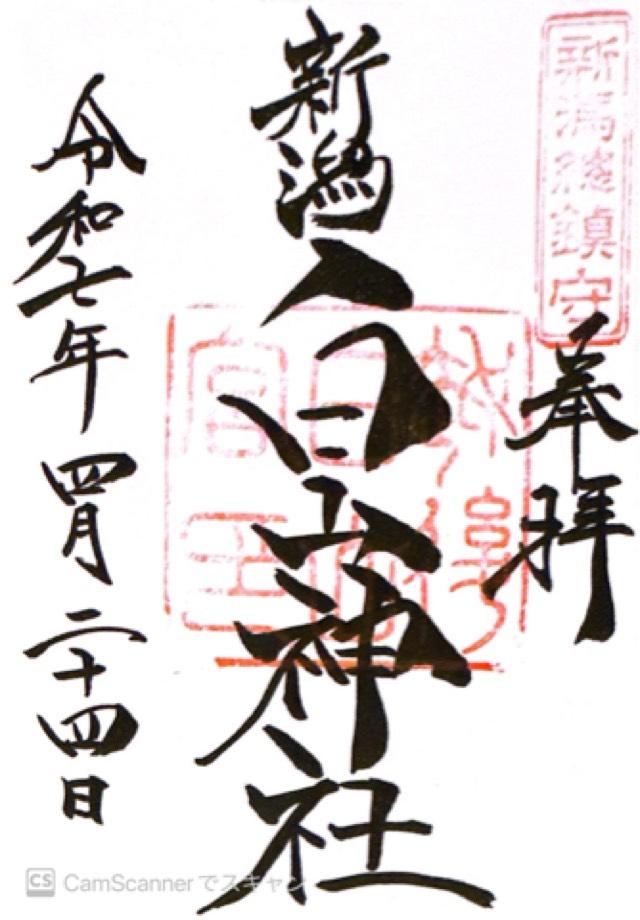 新潟総鎮守
奉拝
新潟白山神社
令和七年四月二十四日
CS CamScannerでスキャン